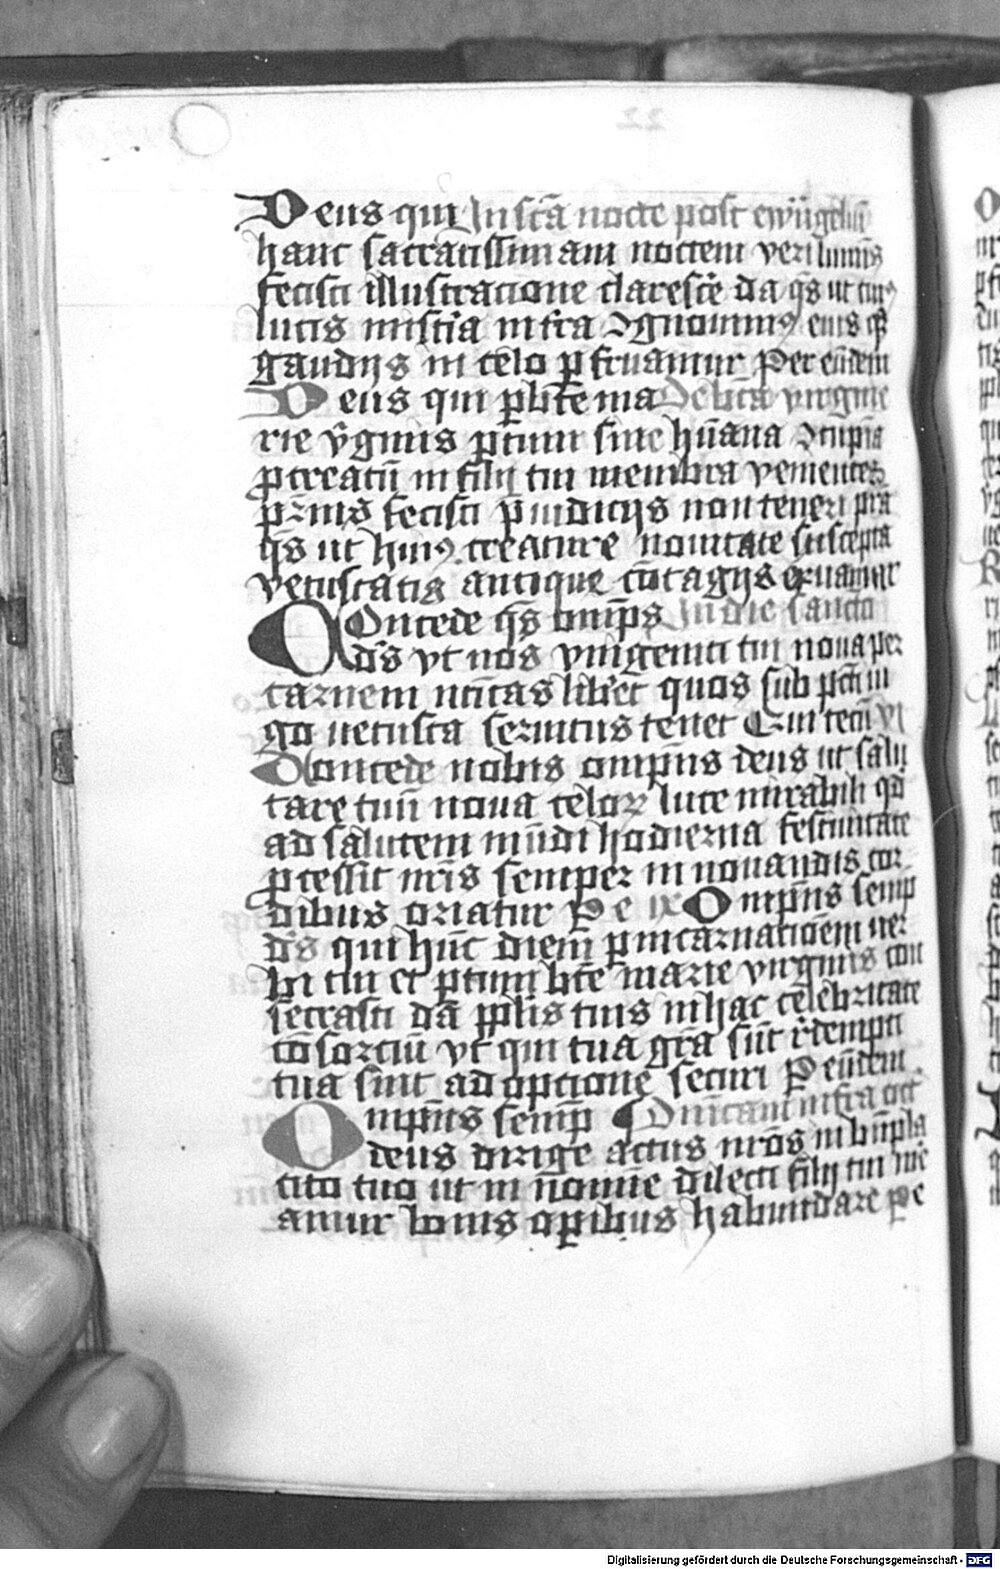 22
Deus qui In sc̄a nocte post ewūgeliū
hanc sacratissimam noctem veri luminis
fecisti illustracione clarescē da qs̄ ut cuiꝰ
lucis mist'ia in t̄ra ꝯgnouimꝰ eius qꝫ
gaudijs in celo ꝑfruamur Per eūdem
Deus qui ꝑ bt̄e ma De bt̄a virgine
rie v̄ginis ꝑtum sine hūana ꝯcupīa
ꝓcreatū in filij tui membra venientes
pr̄nis fecisti p̄iudicijs non teneri pr̄a
qs̄ ut huiꝰ creature nouitate suscepta
vetustatis antique cōtagijs exuamur
Concede qs̄ om̄ps In die sancto
ds̄ vt nos vnigeniti tui noua per
carnem natiuitas liberet quos sub pct̄i iu
go uetusta seruitus tenet Qui tecū vi
Concede nobis omnipn̄s deus ut salu
tare tuū noua celoꝝ luce mirabili qd̄
ad salutem mūdi hodierna festiuitate
ꝓcessit nr̄is semper in nouandis cor
dibus oriatur Pe Omnipn̄s semp̄
ds̄ qui hūc diem ꝑ incarnacionem ver
bi tui et ꝑtum bt̄e marie virginis con
secrasti da pplis tuis in hac celebritate
cōsorciū vt qui tua gr̄a sūt redempti
tua sint adopcione securi P eūdem
Omnipn̄s semp̄ Dn̄icam infra oct
deus dirige actus nr̄os in bn̄pla
cito tuo ut in nomine dilecti filij tui me
amur bonis oꝑibus habundare Pe
Digitalisierung gefördert durch die Deutsche Forschungsgemeinschaft - DFG